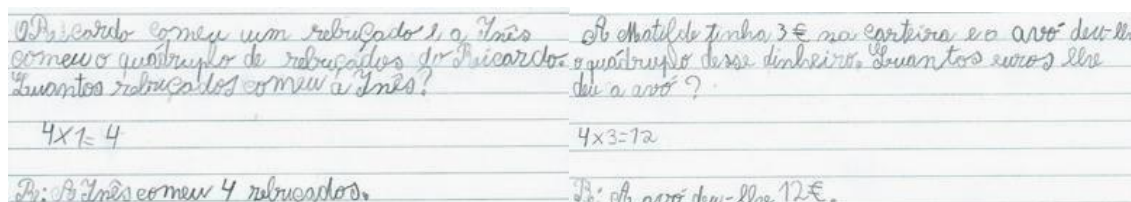 O Ricardo comeu um rebuçado e a Inês
comeu o quádruplo de rebuçados do Ricardo.
Quantos rebuçados comeu a Inês?
4x1=4
R: A Inês comeu 4 rebuçados.
A Matilde tinha 3 € na carteira e a avó deu-lh
o quádruplo desse dinheiro. Quantos euros lhe
deu a avó?
4x3=12
R: A avó deu-lhe 12€.